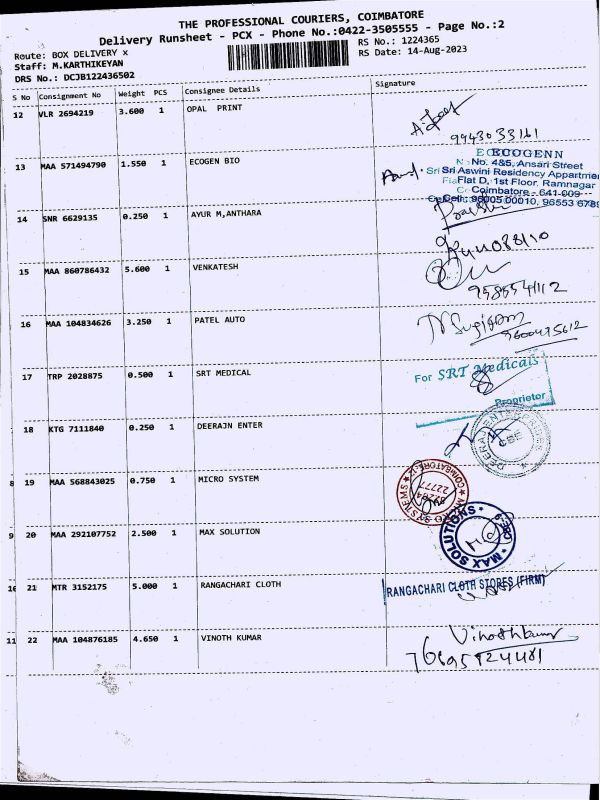 THE PROFESSIONAL COURIERS, COIMBATORE
Delivery Runsheet - PCX - Phone No.:0422-3505555 - Page No.:2
Route: BOX DELIVERY x
RS No.: 1224365
Staff: M.KARTHIKEYAN
RS Date: 14-Aug-2023
DRS No.: DCJB122436502
S No Consignment No Weight PCS Consignee Details Signature
12 VLR 2694219 3.600 1 OPAL PRINT
9943033161
13 MAA 571494790 1.550 1 ECOGEN BIO
ECOGENN
No. 4&5, Ansari Street
Sri Aswini Residency Appartment
Flat D, 1st Floor, Ramnagar
Coimbatore - 641 009
14 SNR 6629135 0.250 1 AYUR M,ANTHARA
15 MAA 860786432 5.600 1 VENKATESH
16 MAA 104834626 3.250 1 PATEL AUTO
9600415612
17 TRP 2028875 0.500 1 SRT MEDICAL
For SRT Medicals
Proprietor
18 KTG 7111840 0.250 1 DEERAJN ENTER
CBE
8 19 MAA 568843025 0.750 1 MICRO SYSTEM
9 20 MAA 292107752 2.500 1 MAX SOLUTION
MAX SOLUTIONS
10 21 MTR 3152175 5.000 1 RANGACHARI CLOTH
RANGACHARI CLOTH STORES (FIRM)
11 22 MAA 104876185 4.650 1 VINOTH KUMAR
Vinothkumar